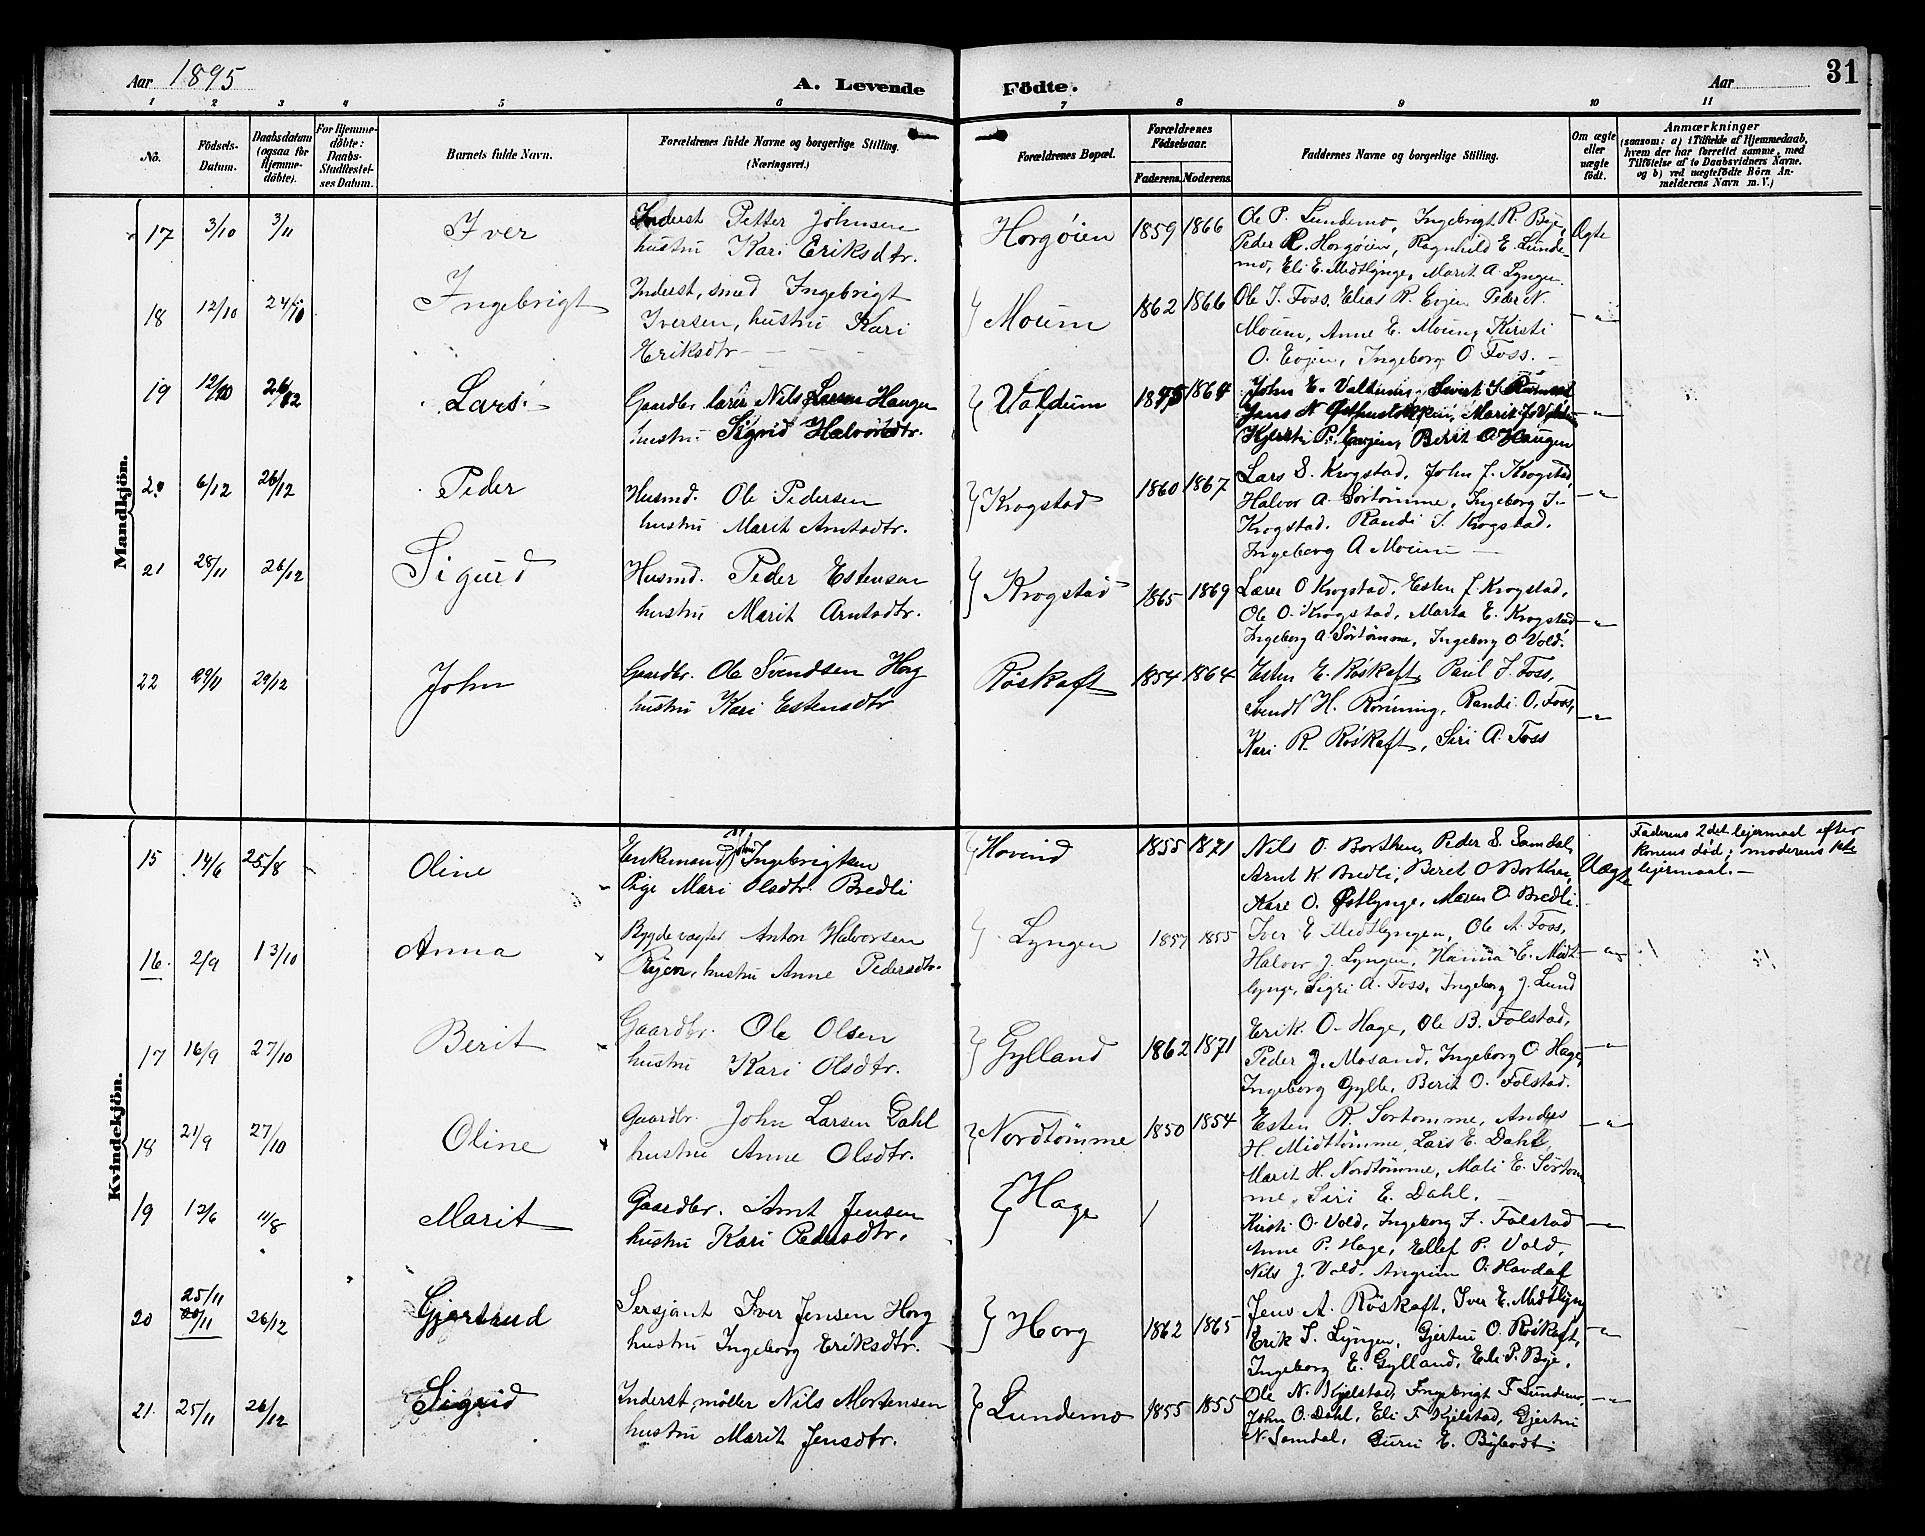 Aar 1895
A. Levende
Födte.
Aar
31
1 2 3 4 5 6 7 8 9 10 11
No.
Födsels-Datum.
Daabsdatum (ogsaa for Hjemme-döbte).
For Hjemme-döbte: Daabs-Stadfæstel-ses Datum.
Barnets fulde Navn.
Forældrenes fulde Navne og borgerlige Stilling. (Næringsvei.)
Forældrenes Bopæl.
Forældrenes Födselsaar.
Faderens. Moderens.
Faddernes Navne og borgerlige Stilling.
Om ægte eller uægte födt.
Anmærkninger
(saasom: a) i Tilfælde af Hjemmedaab, hvem der har forrettet samme, med Tilföielse af to Daabsvidners Navne. og b) ved uægtefödte Börn An-melderens Navn m. V.)
Mandkjön.
17 3/10 3/11 Iver Inderst Petter Johnsen Horgøien 1859 1866 Ole P. Lundemo, Ingebrigt R. Bye, Ægte
hustru Kari Eriksdtr. Peder R. Horgøien, Ragnhild E. Lunde-
mo, Eli E. Midtlynge, Marit A. Lyngen
18 12/10 24/10 Ingebrigt Inderst, smed Ingebrigt Moum 1862 1866 Ole I. Foss, Elias R. Evjen, Peder N.
Iversen, hustru Kari Moum, Anne E. Moum, Kirsti -"-
Eriksdtr. O. Evjen, Ingeborg O Foss.
19 12/10 26/12 Lars Gaardbr. lærer Nils Larsen Haugen Valdum 1864 John E. Valdum,
hustru Sigrid Halvorsdtr. Jens N Østhusløkken, Marit J. Valdum -"-
Kjersti P. Evjen, Berit O Haugen
20 6/12 26/12 Peder Husmd. Ole Pedersen Krogstad 1860 1867 Lars S. Krogstad, John J. Krogstad,
hustru Marit Arntsdtr. Halvor A. Sørtømme, Ingeborg I. -"-
Krogstad, Randi I. Krogstad,
Ingeborg A Moum
21 28/11 26/12 Sigurd Husmd. Peder Estensen Krogstad 1865 1869 Lærer O Krogstad, Esten J. Krogstad,
hustru Marit Arntsdtr. Ole O. Krogstad, Marta E. Krogstad -"-
Ingeborg A. Sørtømme, Ingeborg O Vold.
22 29/11 29/12 John Gaardbr. Ole Svendsen Horg Røskaft 1854 1864 Esten E. Røskaft, Paul I. Foss,
hustru Kari Estensdtr Svend H. Rønning, Randi O. Foss, -"-
Kari R. Røskaft, Siri A. Foss
Kvindekjön.
15 14/6 25/8 Oline Enkemand John Ingebrigtsen Hovind 1855 1871 Nils O. Borthen, Peder S. Samdal, Uægte Faderens 2det leiermaal efter
Pige Mari Olsdtr. Bredli Arnt K. Bredli, Berit O Borthen, konens død; moderens 1ste
Kari O. Østlynge, Maren O. Bredli. leiermaal.
16. 2/9 13/10 Anna Bygdevægter Anton Halvorsen Lyngen 1857 1855 Iver E Midtlyngen, Ole A. Foss,
hustru Anne Pedersdtr. Halvor J. Lyngen, Hanna E. Midt- -"-
lynge, Sigri A. Foss, Ingeborg J. Lund
17 16/9 27/10 Berit Gaardbr. Ole Olsen Gylland 1862 1871 Erik O. Hage, Ole B. Folstad,
hustru Kari Olsdtr. Peder J. Mosand, Ingeborg O. Hage, -"-
Ingeborg Gylle, Berit O. Folstad.
18 21/9 27/10 Oline Gaardbr. John Larsen Dahl Nordtømme 1850 1854 Esten R. Sørtømme, Anders -"-
hustru Anne Olsdtr. H. Midttømme, Lars E. Dahl,
Marit H. Nordtømme, Mali E. Sørtøm-
me, Siri E. Dahl.
19 12/6 11/8 Marit Gaardbr. Arnt Jensen Hage / Kirsti O. Vold, Ingeborg J. Folstad -"-
hustru Kari Pedersdtr. Anne P. Hage, Ellef P. Vold,
Nils J. Vold, Angrim O. Havdal
20 25/11 26/12 Gjertrud Sersjant Iver Jensen Horg Horg 1862 1865 Jens A. Røskaft, Iver E. Midtlyng
hustru Ingeborg Eriksdtr. Erik S. Lyngen, Gjertru O. Røskaft, -"-
Ingeborg E. Gylland, Eli P. Bye.
21. 25/11 26/12 Sigrid Inderst, møller Nils Mortensen Lundemo 1855 1855 Ole N. Kjelstad, Ingebrigt F Lundemo, -"-
hustru Marit Jensdtr. John O. Dahl, Eli F Kjelstad, Gjertru
N. Samdal, Guru E.